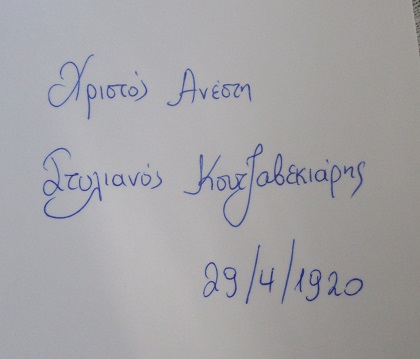 Χριστός Ανέστη
Στυλιανός Κουτζαβεκιάρης
29/4/1920